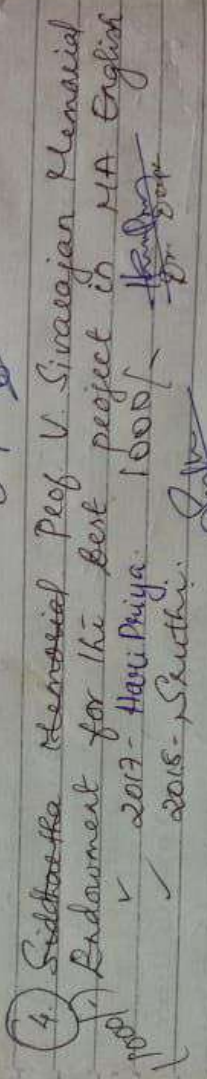 4. Siddhartha Memorial Prof V. Sivarajan Memorial
Endowment for the best project in MA English
✓ 2017 - Hari Priya. 1000/-
1000/
✓ 2018 - Sruthi.